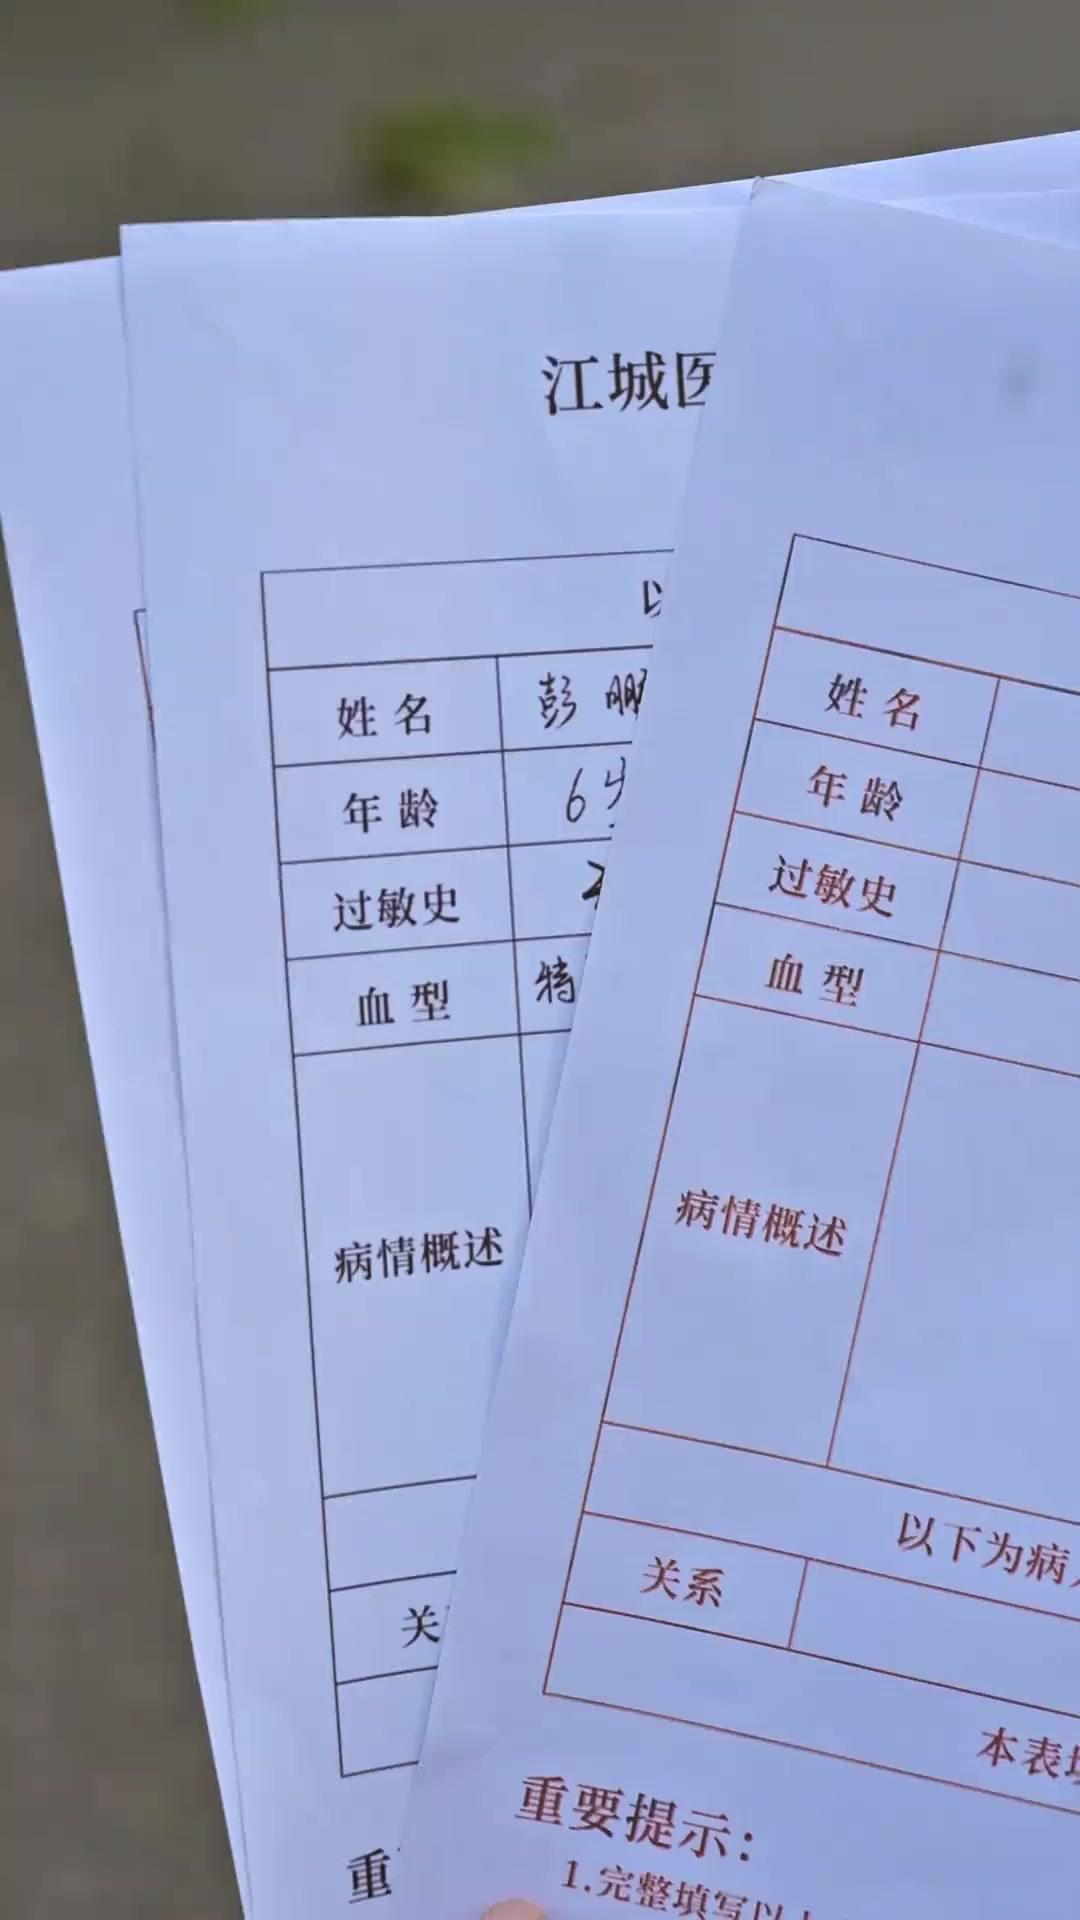 江城医
以
姓名 彭鹏
年龄 6岁
过敏史
血型 特
病情概述
关
重
姓名
年龄
过敏史
血型
病情概述
以下为病
关系
本表
重要提示：
1.完整填写以上